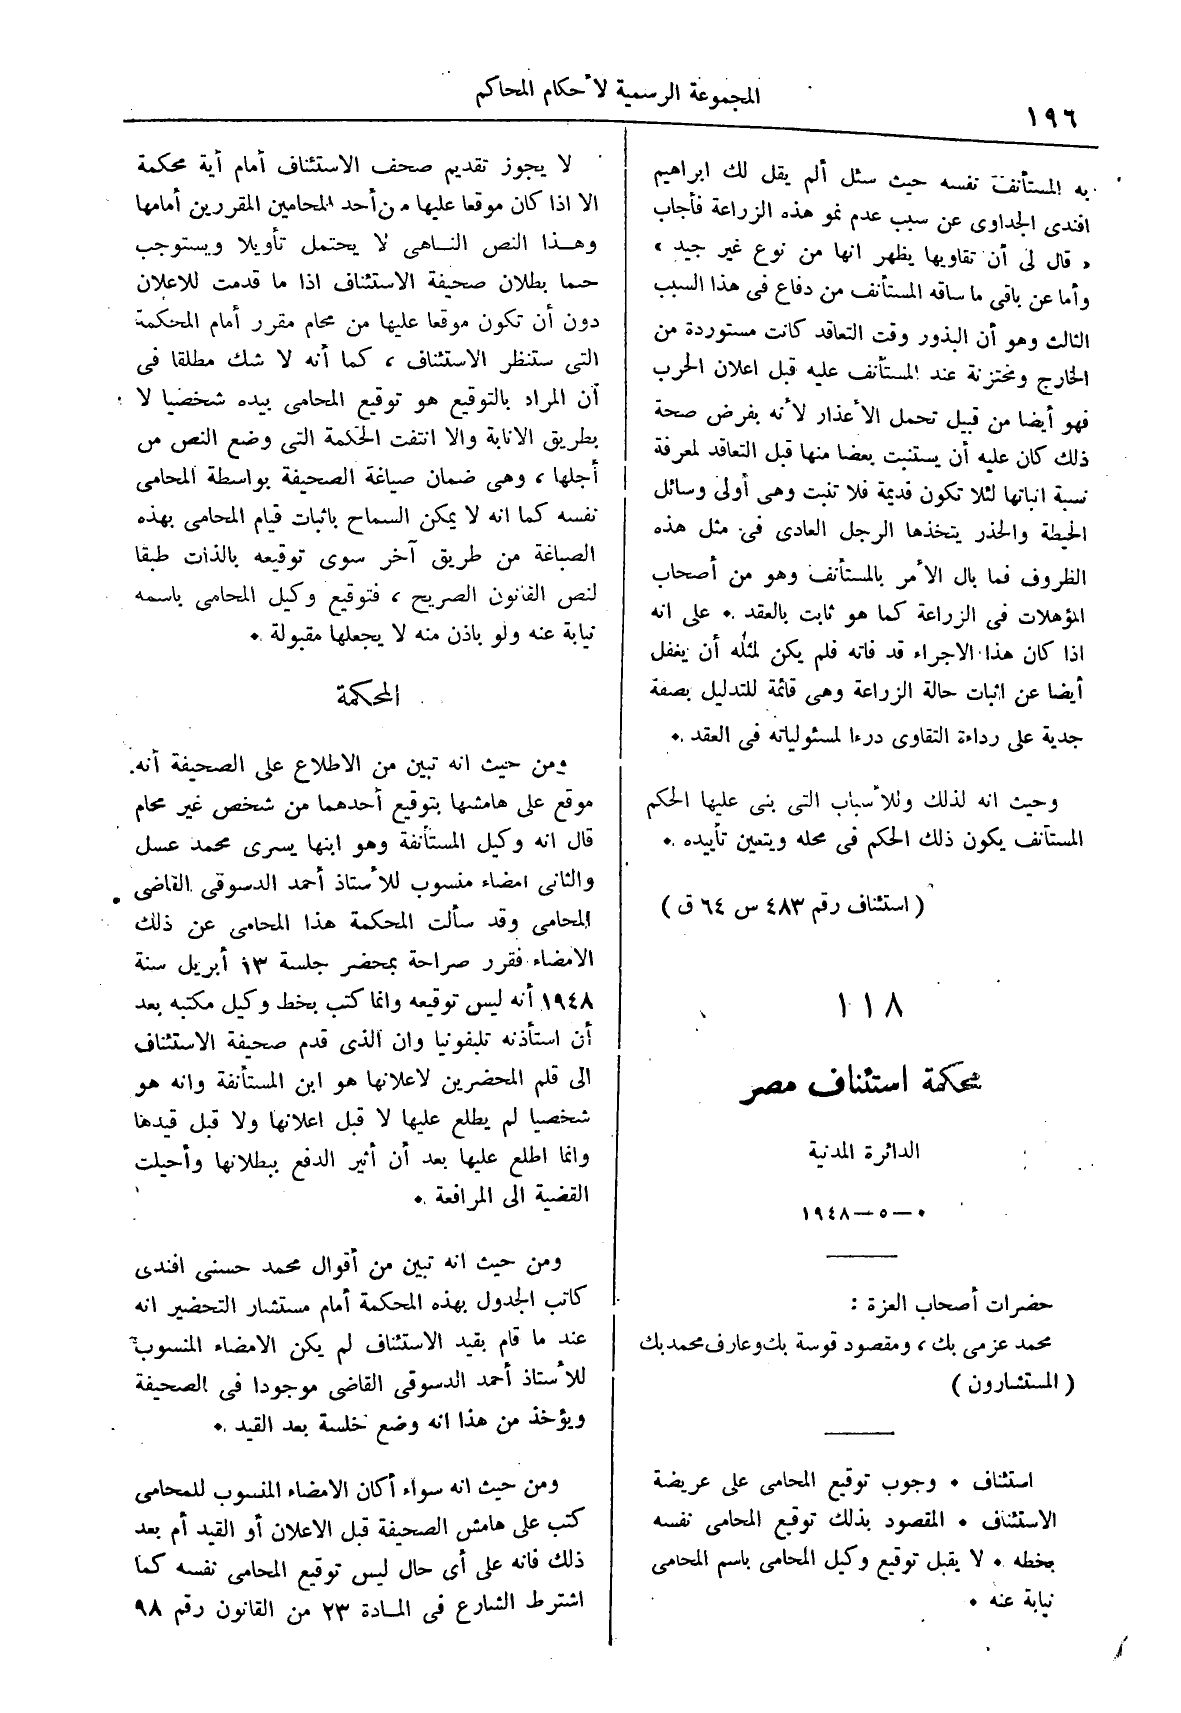 ١٩٦
المجموعة الرسمية لأحكام المحاكم
به المستأنف نفسه حيث سئل ألم يقل لك ابراهيم
افندى الجداوى عن سبب عدم نمو هذه الزراعة فأجاب
« قال لى أن تقاويها يظهر انها من نوع غير جيد »
وأما عن باقى ما ساقه المستأنف من دفاع فى هذا السبب
الثالث وهو أن البذور وقت التعاقد كانت مستوردة من
الخارج ومختزنة عند المستأنف عليه قبل اعلان الحرب
فهو أيضا من قبيل تحمل الأعذار لأنه بفرض صحة
ذلك كان عليه أن يستنبت بعضا منها قبل التعاقد لمعرفة
نسبة انباتها لئلا تكون قديمة فلا تنبت وهى أولى وسائل
الحيطة والحذر يتخذها الرجل العادى فى مثل هذه
الظروف فما بال الأمر بالمستأنف وهو من أصحاب
المؤهلات فى الزراعة كما هو ثابت بالعقد . على انه
اذا كان هذا الاجراء قد فاته فلم يكن لمثله أن يغفل
أيضا عن اثبات حالة الزراعة وهى قائمة للتدليل بصفة
جدية على رداءة التقاوى درءا لمسئولياته فى العقد .
وحيث انه لذلك وللأسباب التى بنى عليها الحكم
المستأنف يكون ذلك الحكم فى محله ويتعين تأييده .
( استئناف رقم ٤٨٣ س ٦٤ ق )
١١٨
محكمة استئناف مصر
الدائرة المدنية
٠ — ٥ — ١٩٤٨
حضرات أصحاب العزة :
محمد عزمى بك ، ومقصود قوسة بك وعارف محمد بك
( المستشارون )
استئناف . وجوب توقيع المحامى على عريضة
الاستئناف . المقصود بذلك توقيع المحامى نفسه
بخطه . لا يقبل توقيع وكيل المحامى باسم المحامى
نيابة عنه .
لا يجوز تقديم صحف الاستئناف أمام أية محكمة
الا اذا كان موقعا عليها من أحد المحامين المقررين أمامها
وهـذا النص الناهى لا يحتمل تأويلا ويستوجب
حتما بطلان صحيفة الاستئناف اذا ما قدمت للاعلان
دون أن تكون موقعا عليها من محام مقرر أمام المحكمة
التى ستنظر الاستئناف ، كما أنه لا شك مطلقا فى
أن المراد بالتوقيع هو توقيع المحامى بيده شخصيا لا
بطريق الانابة والا انتفت الحكمة التى وضع النص من
أجلها ، وهى ضمان صياغة الصحيفة بواسطة المحامى
نفسه كما انه لا يمكن السماح باثبات قيام المحامى بهذه
الصياغة من طريق آخر سوى توقيعه بالذات طبقا
لنص القانون الصريح ، فتوقيع وكيل المحامى باسمه
نيابة عنه ولو باذن منه لا يجعلها مقبولة .
المحكمة
ومن حيث انه تبين من الاطلاع على الصحيفة أنه
موقع على هامشها بتوقيع أحدهما من شخص غير محام
قال انه وكيل المستأنفة وهو ابنها يسرى محمد عسل
والثانى امضاء منسوب للأستاذ أحمد الدسوقى القاضى
المحامى وقد سألت المحكمة هذا المحامى عن ذلك
الامضاء فقرر صراحة بمحضر جلسة ١٣ أبريل سنة
١٩٤٨ أنه ليس توقيعه وانما كتب بخط وكيل مكتبه بعد
أن استأذنه تليفونيا وان الذى قدم صحيفة الاستئناف
الى قلم المحضرين لاعلانها هو ابن المستأنفة وانه هو
شخصيا لم يطلع عليها لا قبل اعلانها ولا قبل قيدها
وانما اطلع عليها بعد أن أثير الدفع ببطلانها وأحيلت
القضية الى المرافعة .
ومن حيث انه تبين من أقوال محمد حسنى افندى
كاتب الجدول بهذه المحكمة أمام مستشار التحضير انه
عند ما قام بقيد الاستئناف لم يكن الامضاء المنسوب
للأستاذ أحمد الدسوقى القاضى موجودا فى الصحيفة
ويؤخذ من هذا انه وضع خلسة بعد القيد .
ومن حيث انه سواء أكان الامضاء المنسوب للمحامى
كتب على هامش الصحيفة قبل الاعلان أو القيد أم بعد
ذلك فانه على أى حال ليس توقيع المحامى نفسه كما
اشترط الشارع فى المـادة ٢٣ من القانون رقم ٩٨